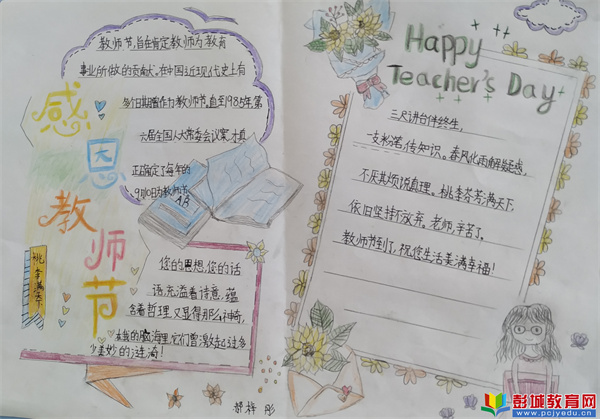 教师节,旨在肯定教师为教育
事业所做的贡献。在中国近现代史上有
多个日期曾作为教师节,直至1985年,第
六届全国人大常委会议案,才真
正确定了每年的
9月10日为教师节
AB
感恩教师节
桃李满天下
您的思想,您的话
语,充溢着诗意,蕴
含着哲理,又显得那么神奇,
在我的脑海里,它们曾激起过多
少美妙的涟漪!
Happy
Teacher's Day
三尺讲台伴终生,
一支粉笔,传知识。春风化雨解疑惑,
不厌其烦说真理。桃李芬芳满天下,
依旧坚持不放弃。老师,辛苦了。
教师节到了,祝您生活美满幸福!
彭城教育网
www.pcjyedu.cn